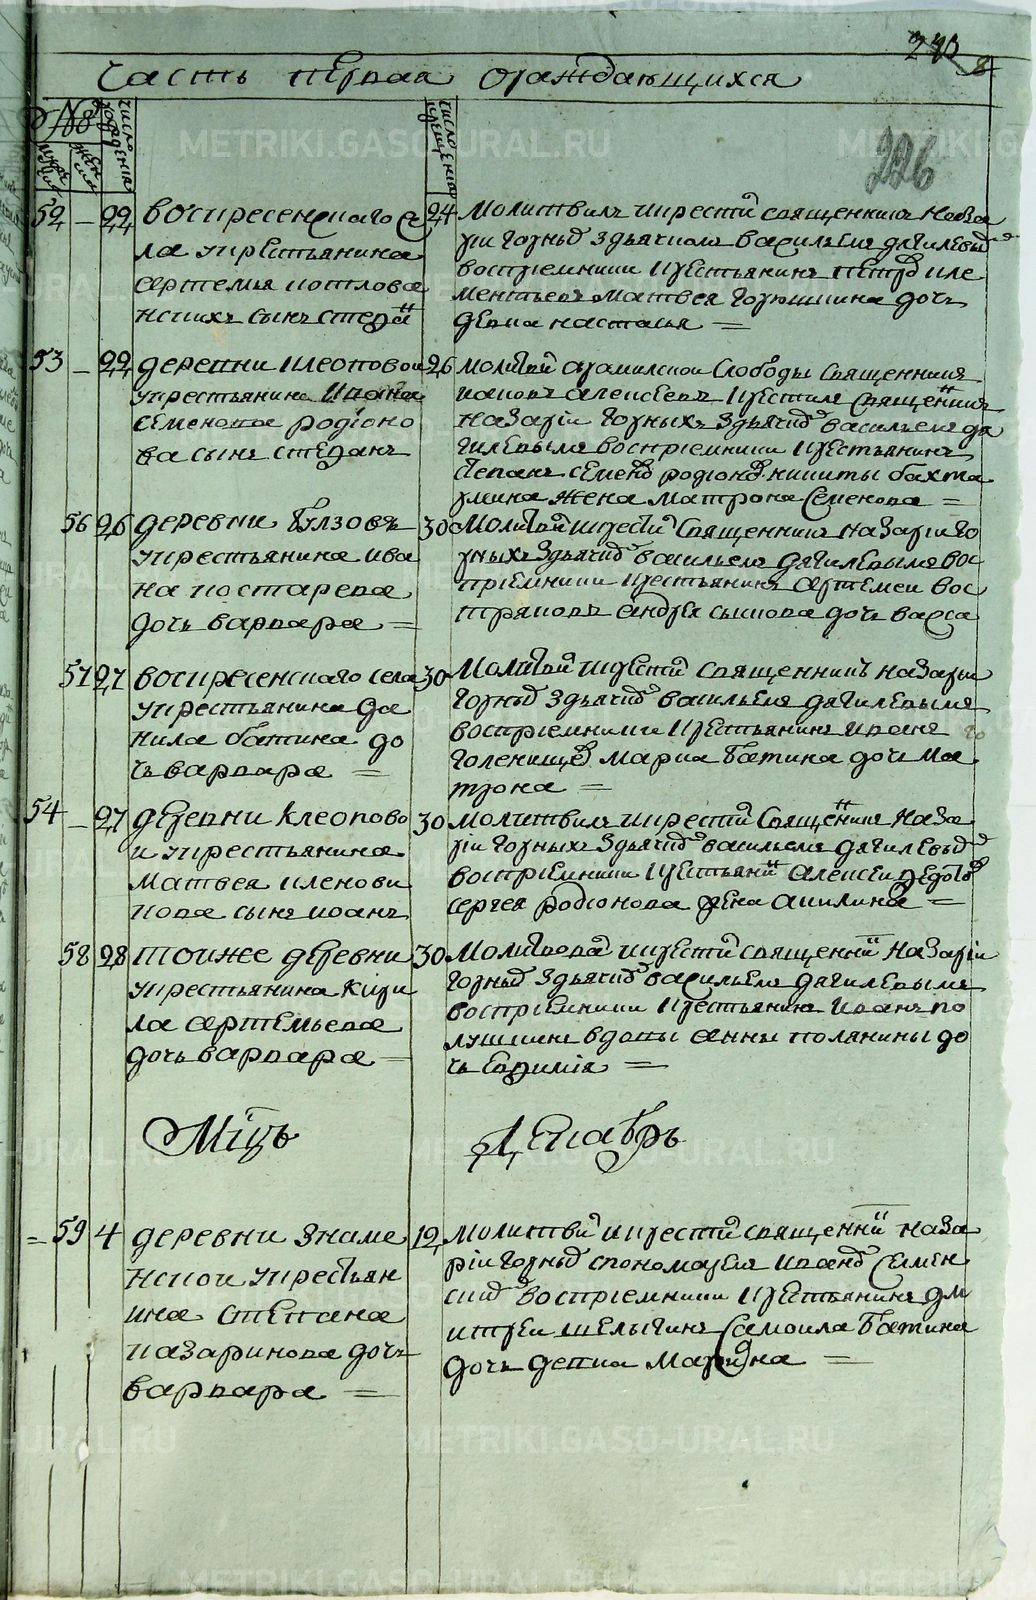 Часть первая ораждающихся
226
№
мужеска
женска
число рождения
число крещения
52 — 22 воскресенскаго се
ла укрестьянина
артемья котлова
нских сынъ стефа
24 Молитвилъ икрести священникъ Наза
рїи горных здьячкомъ василъемъ дягилевы
восприемники крестьянинъ петръ кле
ментьевъ матвея горюшкина дочь
девка настасья =
53 — 22 деревни клеоповои
укрестьянина ивана
семенова родїоно
ва сынъ стефанъ
26 молитвои арамилскои слободы священникъ
иаковъ алексеевъ крестилъ священникъ
назарїи горныхъ здьячко василъемъ дя
гилевымъ восприемники крестьянинъ
степанъ семено родїоно никиты бахта
рмина жена матрона семенова =
56 26 деревни
укрестьянина ива
на костарева
дочь варвара =
30 Молитвои икрести священникъ назарїи го
рныхъ здьячко василъемъ дягилевымъ вос
приемники крестьянинъ артемеи вос
тряковъ андрея сынова дочь васса
57 27 воскресенскаго села
укрестьянина да
нила батина до
чь варвара =
30 Молитвои икрести священникъ назарїи
горны здьячко василъемъ дягилевымъ
восприемники крестьянинъ иванъ
голенище мариа батина дочь ма
трона =
54 — 27 деревни Клеопово
и укрестьянина
матвея кленови
кова сынъ иоанъ
30 молитвилъ икрести священникъ наза
рїи горныхъ здьячко василъемъ дягилевы
восприемники крестьяни алексеи федото
сергея родїонова жена акилина =
58 28 тоиже деревни
укрестьянина Кири
ла артемьева
дочь варвара =
30 Молитвова икрести священни назарїи
горны здьячко василъемъ дягилевымъ
восприемники крестьянинъ иванъ по
лушкинъ вдовы анны полянины до
чь евдимїя =
Мцъ Декабрь
= 59 4 деревни знаме
нскои укрестьян
ина степана
назаринова дочь
варвара =
12 молитви икрести священни наза
рїи горны спономаремъ ивано семен
ски восприемники крестьянинъ дм
итреи шелыгинъ самоила батина
дочь девка Марина =